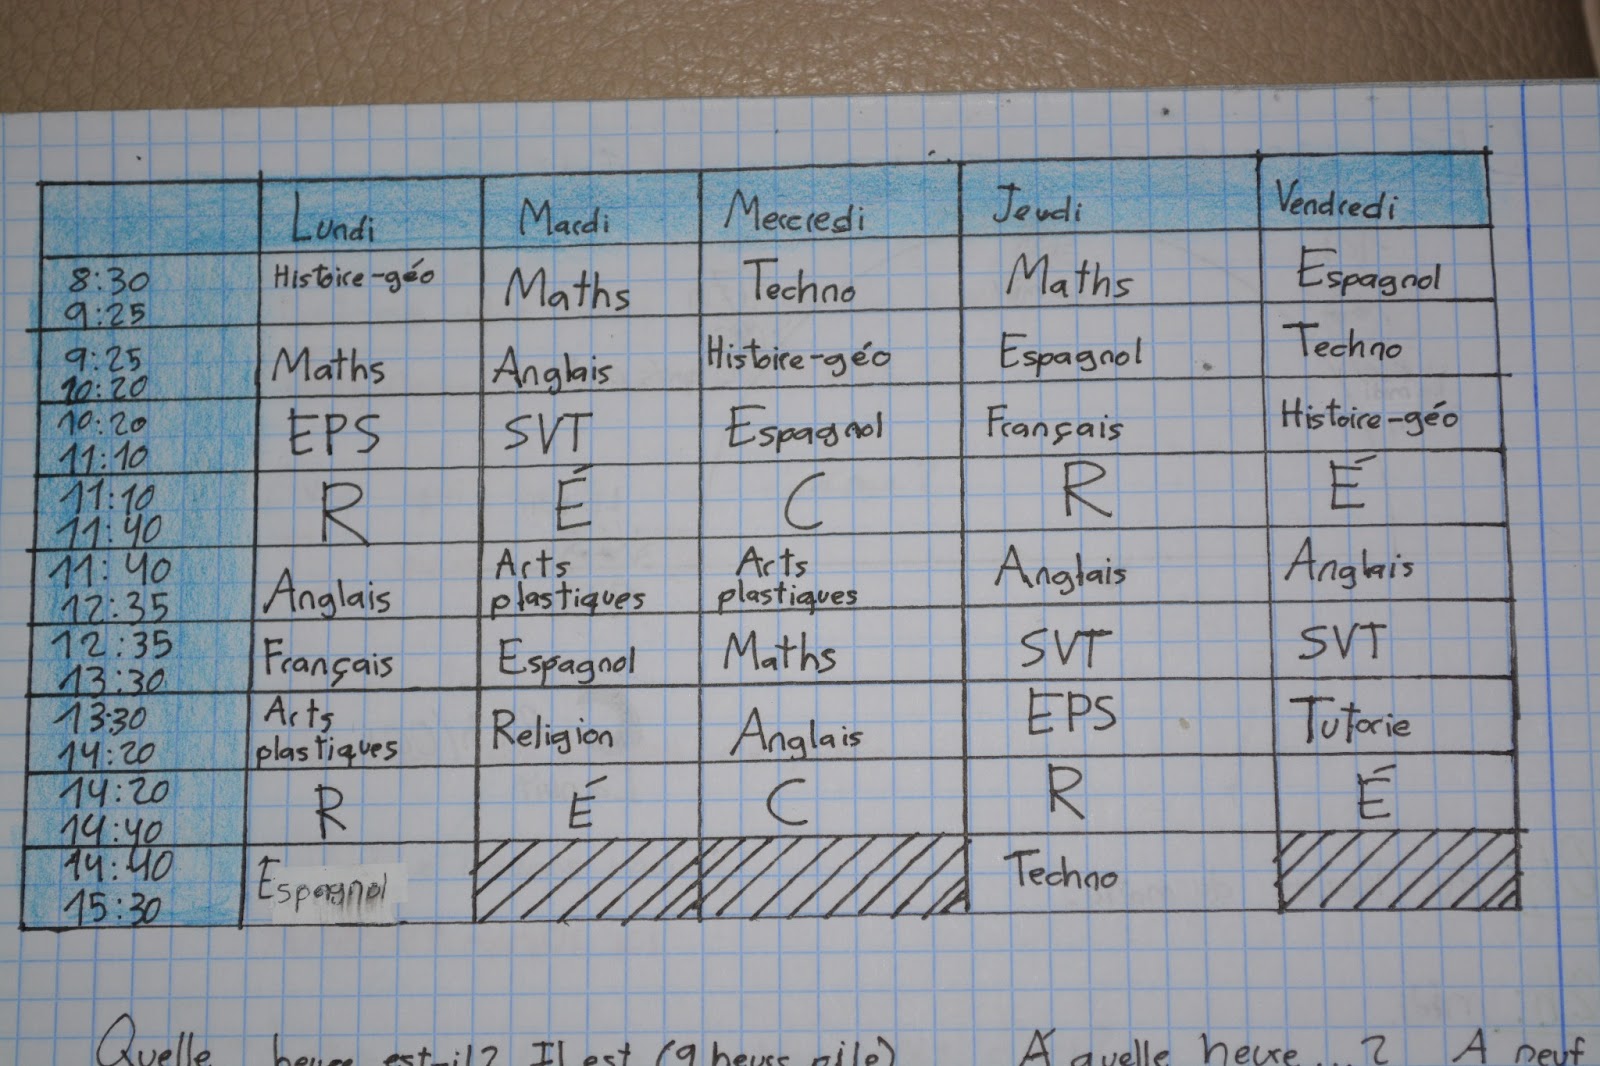 Lundi Mardi Mercredi Jeudi Vendredi
8:30 9:25 Histoire-géo Maths Techno Maths Espagnol
9:25 10:20 Maths Anglais Histoire-géo Espagnol Techno
10:20 11:10 EPS SVT Espagnol Français Histoire-géo
11:10 11:40 R É C R É
11:40 12:35 Anglais Arts plastiques Arts plastiques Anglais Anglais
12:35 13:30 Français Espagnol Maths SVT SVT
13:30 14:20 Arts plastiques Religion Anglais EPS Tutorie
14:20 14:40 R É C R É
14:40 15:30 Espagnol Techno
Quelle heure est-il? Il est (9 heure pile) À quelle heure...? A neuf